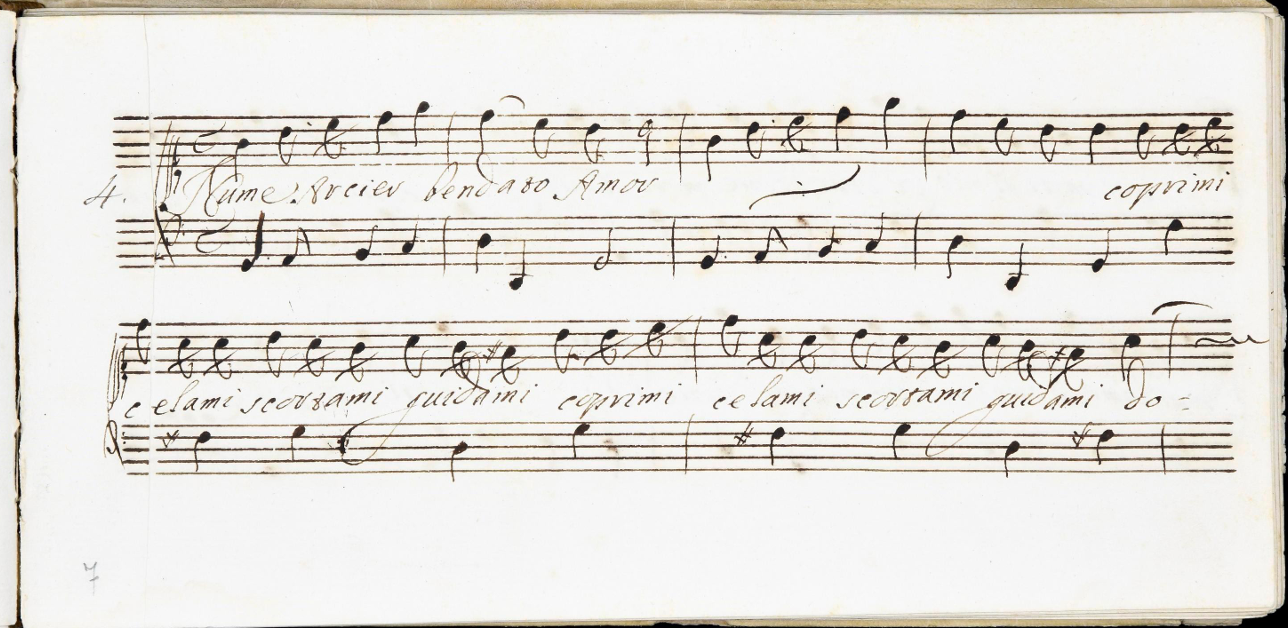 4. Nume Arcier bendato Amor coprimi
celami scortami guidami coprimi celami scortami guidami do=
7